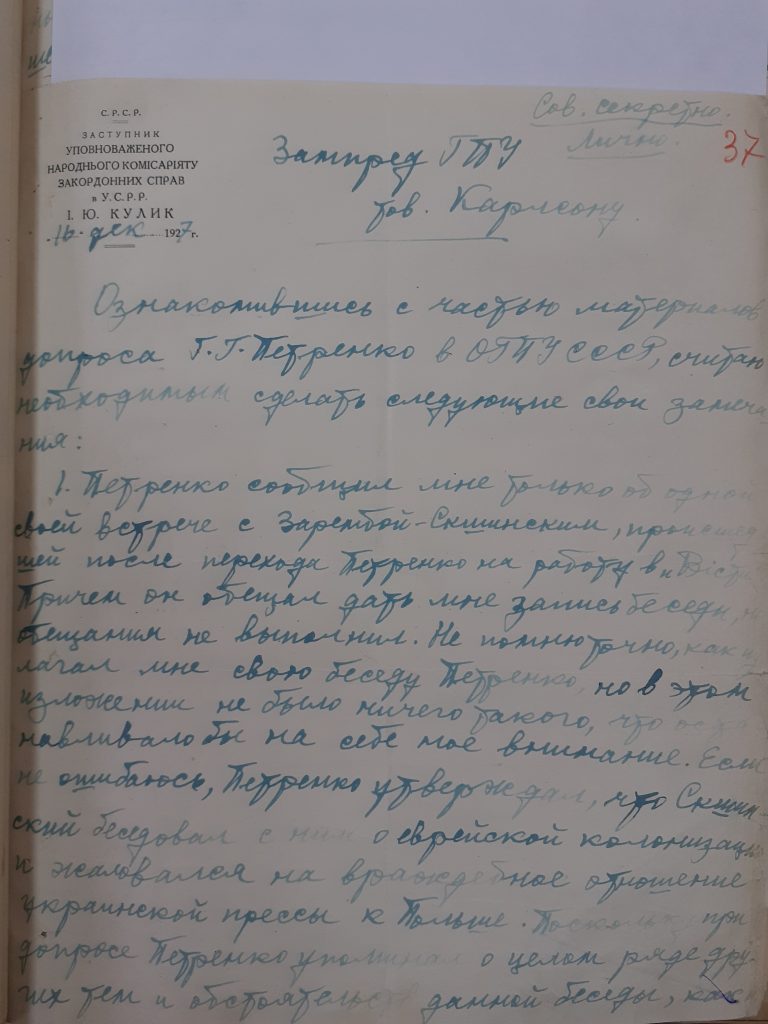 Сов. секретно.
Лично.
37
С.Р.С.Р.
ЗАСТУПНИК
УПОВНОВАЖЕНОГО
НАРОДНЬОГО КОМІСАРІЯТУ
ЗАКОРДОННИХ СПРАВ
в У.С.Р.Р.
І. Ю. КУЛИК
16 дек 1927 г.
Зампред ГПУ
тов. Карлсону.
Ознакомившись с частью материалов
допроса Г.Г. Петренко в ОГПУ СССР, считаю
необходимым сделать следующие свои замеча
ния:
1. Петренко сообщил мне только об одной
своей встрече с Зарембой-Скшинским, происшед
шей после перехода Петренко на работу в „Вісті
Причем он обещал дать мне запись беседы, но
обещания не выполнил. Не помню точно, как из
лагал мне свою беседу Петренко, но в этом
изложении не было ничего такого, что оста
навливало бы на себе мое внимание. Если
не ошибаюсь, Петренко утверждал, что Скшин-
ский беседовал с ним о еврейской колонизации
и жаловался на враждебное отношение
украинской прессы к Польше. Поскольку при
допросе Петренко упоминал о целом ряде дру-
гих тем и обстоятельств данной беседы, как